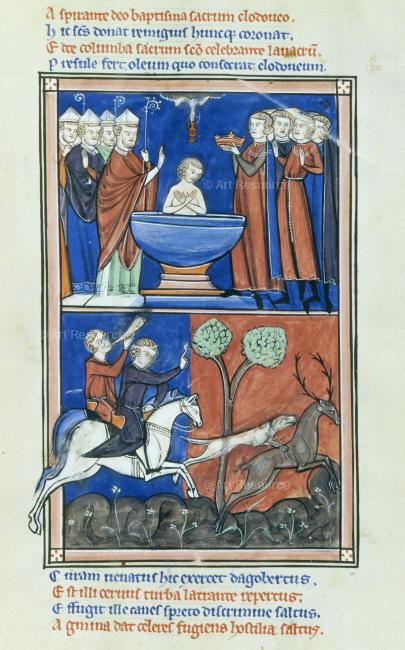 A spirante deo baptisma sacrum clodoueo.
H ic scs donat remigius huncq; coronat.
E cce columba sacrum sco celebrante lauacrū.
P resule fert oleum quo consecrat clodoueum.
© Art Resource
© Art Resource
© Art Resource
© Art Resource
C uram uenatus hic exercet dagobertus.
E st illi ceruus turba latrante repertus.
E ffugit ille canes spreto discrimine saltus.
A gmina dat celeres fugiens hostilia saltus.